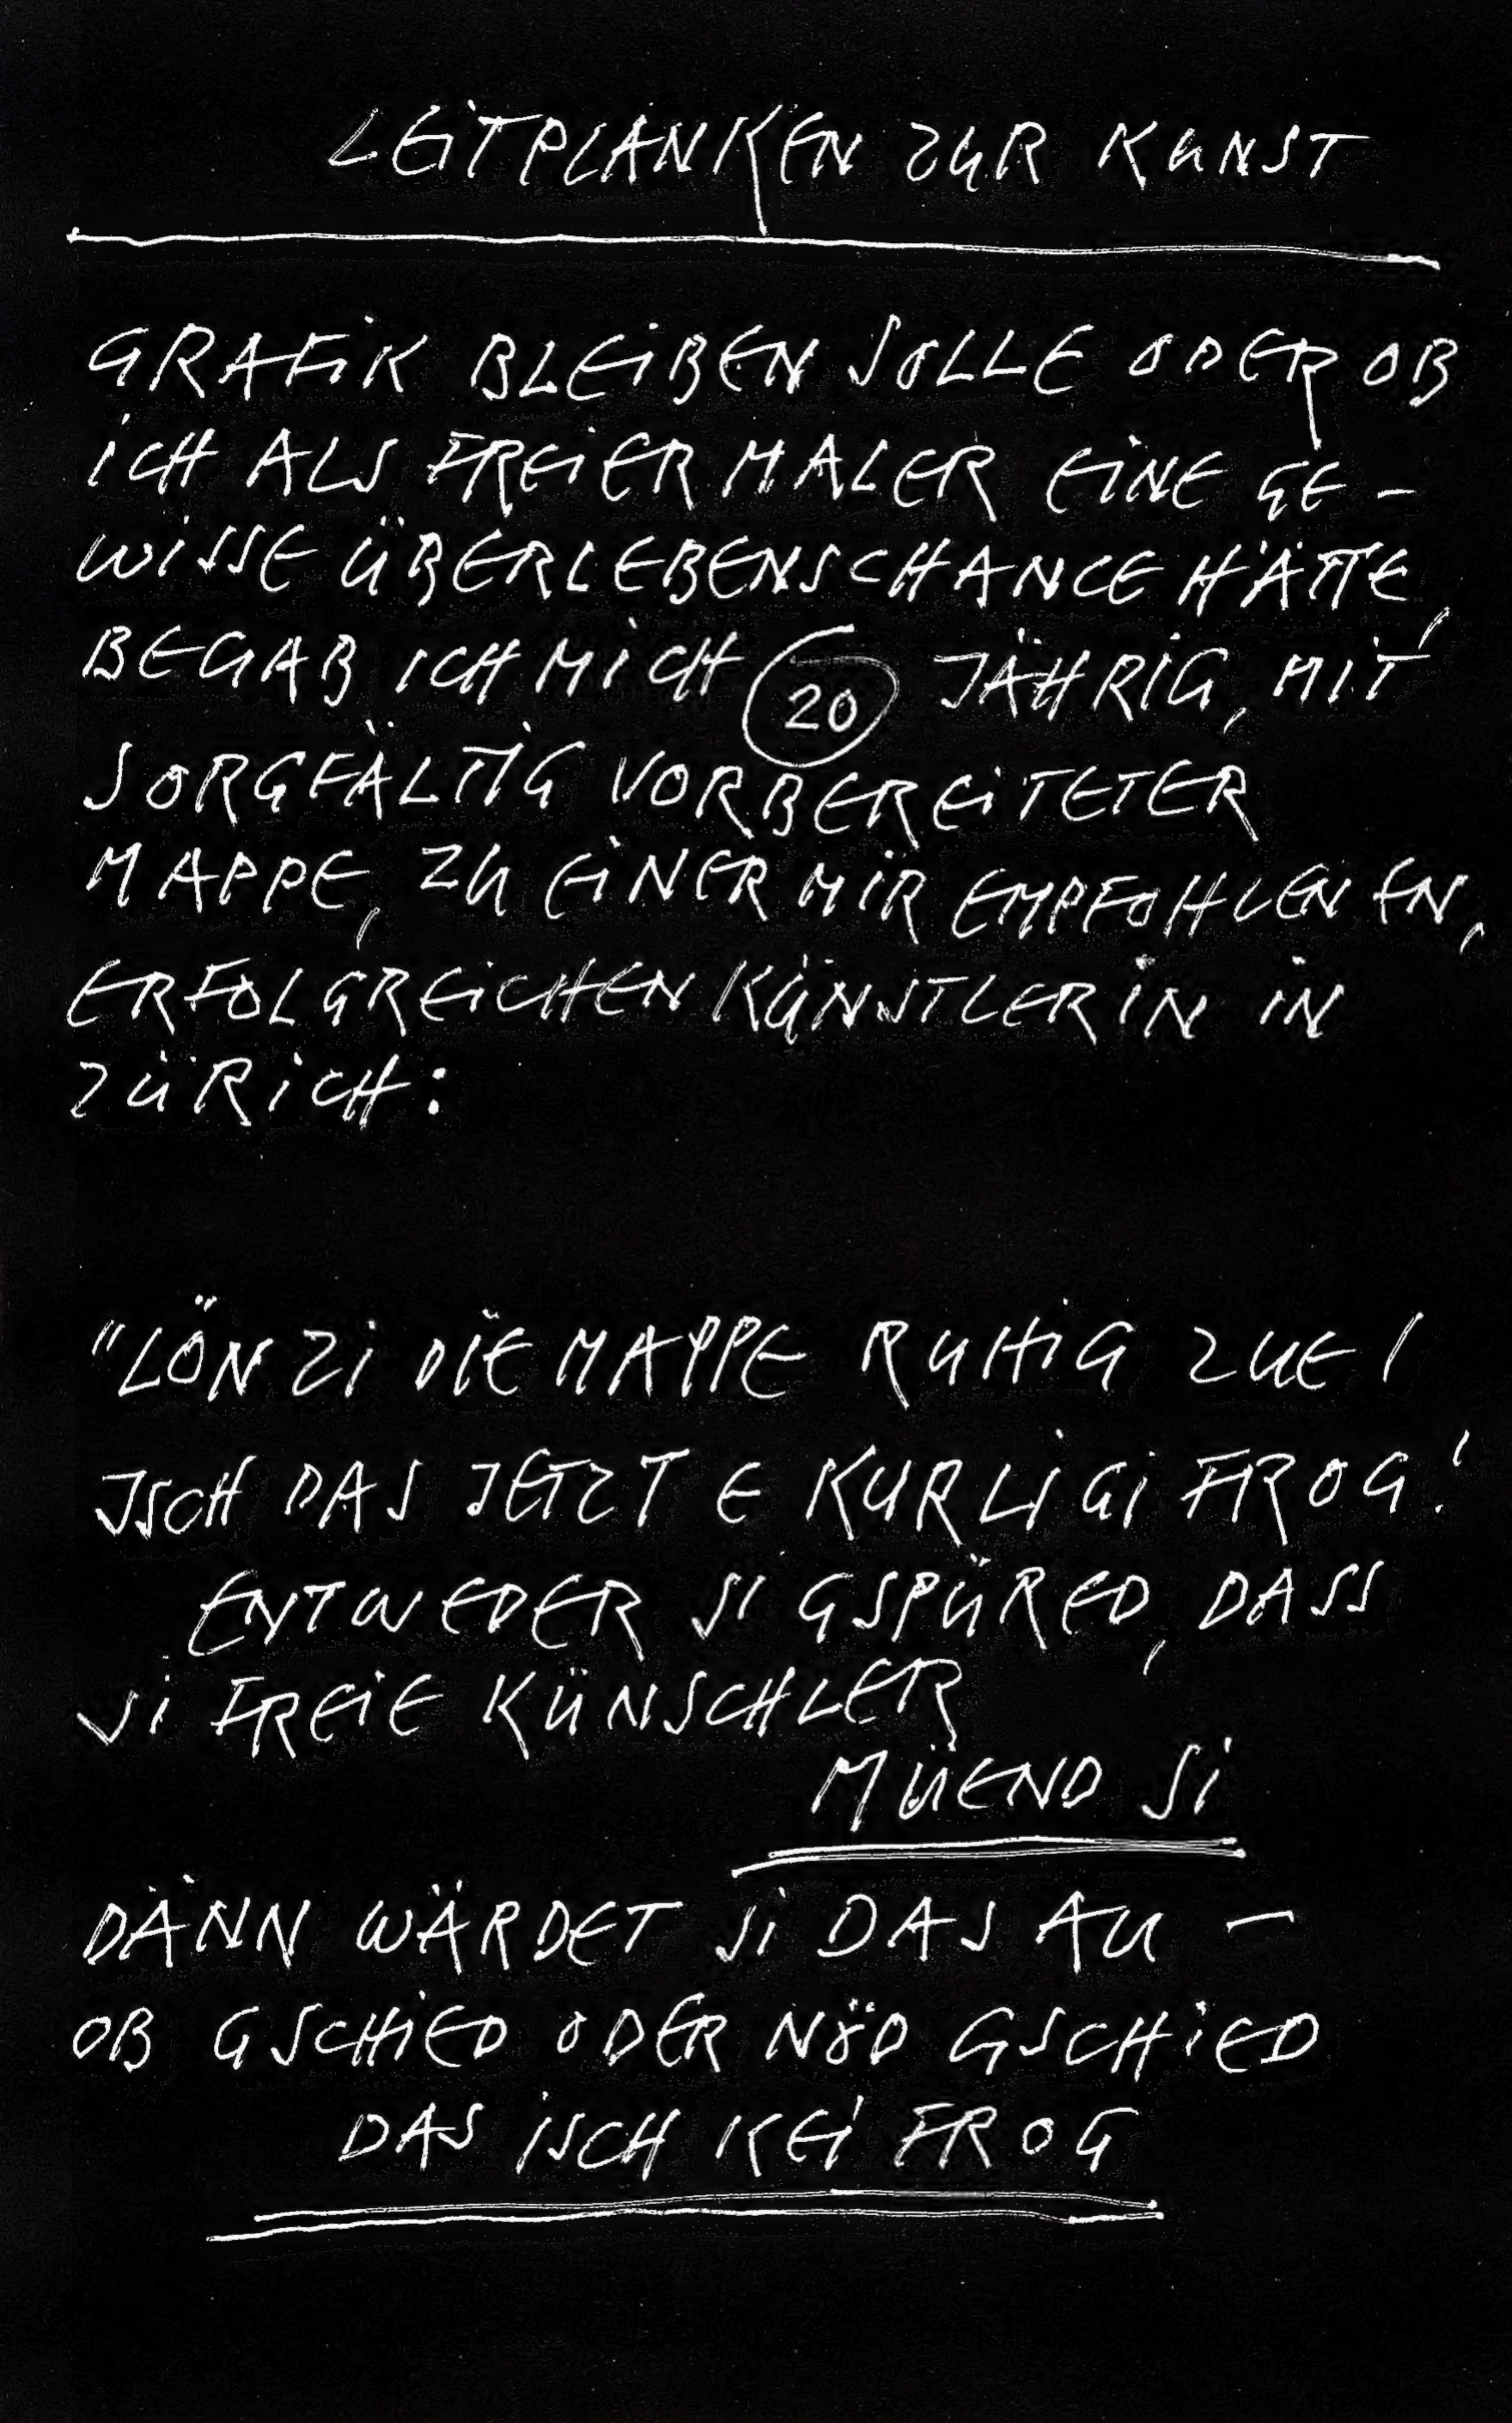 LEITPLANKEN ZUR KUNST
GRAFIK BLEIBEN SOLLE ODER OB
ICH ALS FREIER MALER EINE GE-
WISSE ÜBERLEBENSCHANCE HÄTTE,
BEGAB ICH MICH 20 JÄHRIG, MIT
SORGFÄLTIG VORBEREITETER
MAPPE, ZU EINER MIR EMPFOHLENEN,
ERFOLGREICHEN KÜNSTLERIN IN
ZÜRICH:
"LÖN ZI DIE MAPPE RUHIG ZUE!
ISCH DAS JETZT E KURLIGI FROG!
ENTWEDER SI GSPÜRED, DASS
SI FREIE KÜNSCHLER
MÜEND SI
DÄNN WÄRDET SI DAS AU -
OB GSCHIED ODER NÖD GSCHIED
DAS ISCH KEI FROG